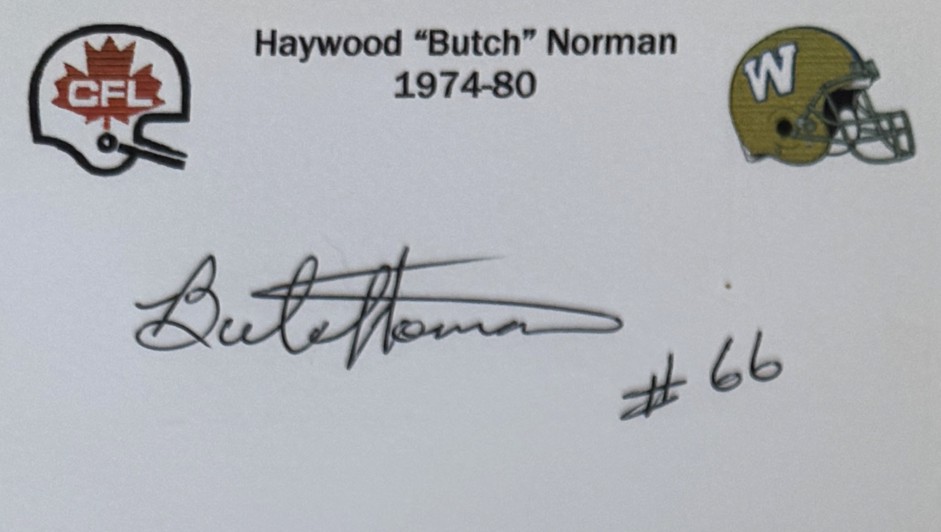 CFL
Haywood “Butch” Norman
1974-80
W
Butch Norman
# 66